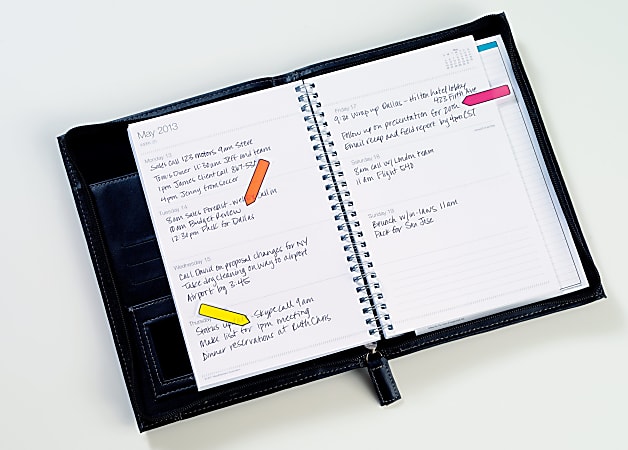 May 2013
Monday 13
Sales call 123 motors 9am Steve
Tom's Diner 11:30am Jeff and team
1pm James client call 867-5
4pm Jenny from soccer
Tuesday 14
8am Sales Forecast - call in
10am Budget Review
12:30pm Pack for Dallas
Wednesday 15
Call David on proposal changes for NY
Take dry cleaning on way to airport
Airport by 3:45
Thursday
Status up - Skype call 9am
Make list for 1pm meeting
Dinner reservations at Ruth Chris
Friday 17
9:30 Wrap up Dallas - Hilton hotel lobby
423 Fifth Ave
Follow up on presentation for 20th
Email recap and field report by 4pm CST
Saturday 18
8am call w/ London team
11am Flight 540
Sunday 19
Brunch w/ in-laws 11am
Pack for San Jose